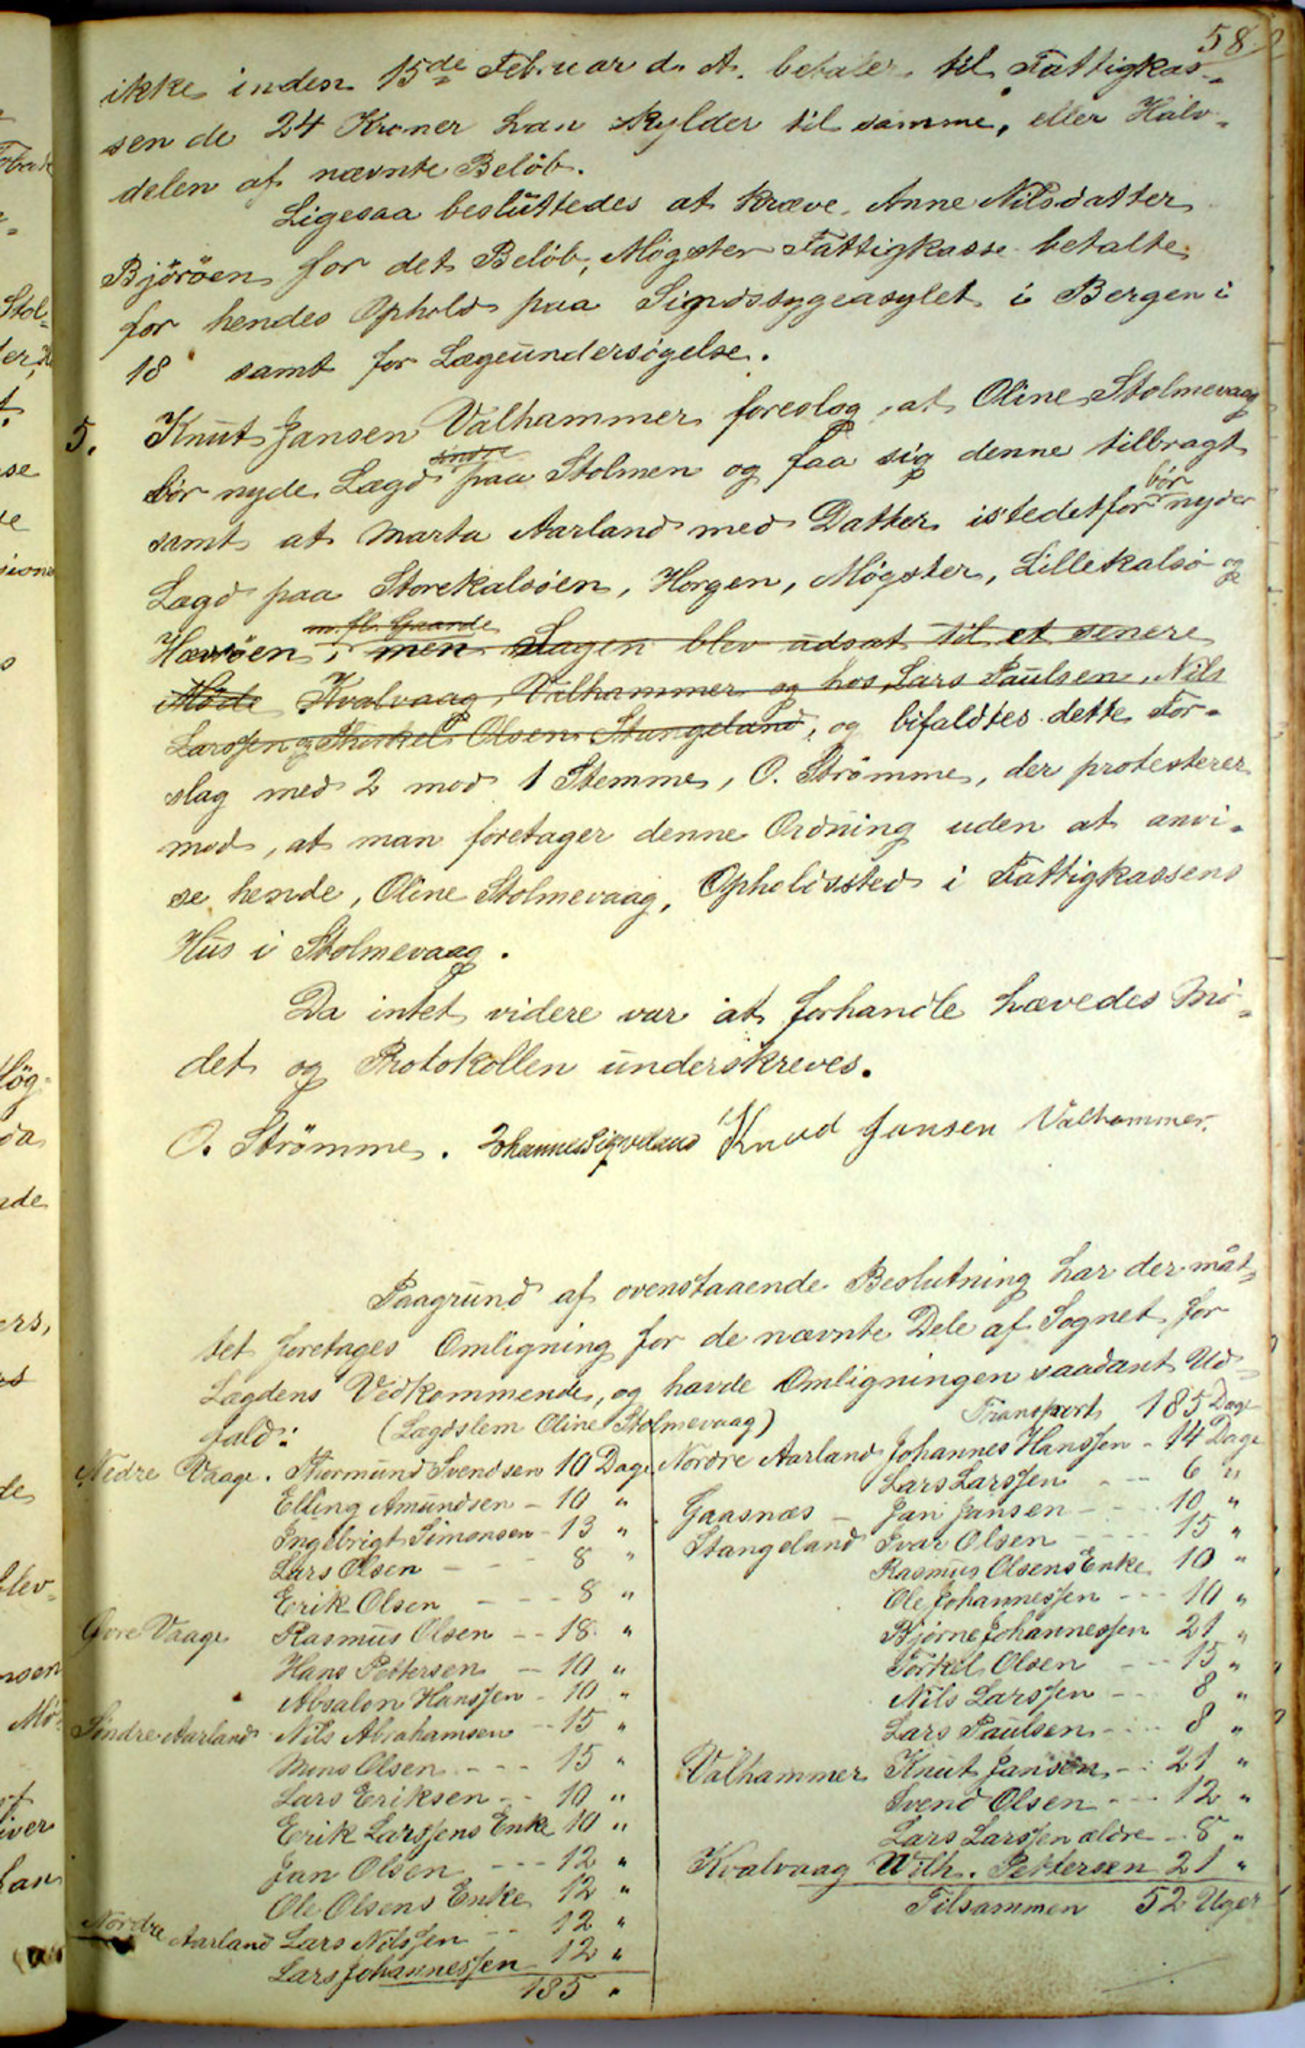 58.
ikke inden 15de Februar d. A. betaler til Fattigkas-
sen de 24 Kroner han skylder til samme, eller Halv-
delen af nævnte Beløb.
Ligesaa besluttedes at kræve Anne Nilsdatter
Bjørøen for det Beløb, Møgster Fattigkasse betalte
for hendes Ophold paa Sindssygeasylet i Bergen i
18 samt for Lægeundersøgelse.
5. Knut Jansen Valhammer foreslog, at Oline Stolmevaag
bør nyde Lægd søndre paa Stolmen og faa sig denne tilbragt
samt at Marta Aarland med Datter istedetfor bør nyder
Lægd paa Storekalsøen, Horgen, Møgster, Lillekalsø og
Havsøen, m. fl. Gaarde men Sagen blev udsat til et senere
Møde Kvalvaag, Valhammer og hos Lars Paulsen, Nils
Larssen og Thorkel Olsen Stangeland, og bifaldtes dette For-
slag med 2 mod 1 Stemme, O. Strømme, der protesterer
mod, at man foretager denne Ordning uden at anvi-
se hende, Oline Stolmevaag, Opholdssted i Fattigkassens
Hus i Stolmevaag.
Da intet videre var at forhandle hævedes Mø-
det og Protokollen underskreves.
O. Strømme. Johannes Sigvaland Knud Jansen Valhammer.
Paagrund af ovenstaaende Beslutning har der måt-
tet foretages Omligning for de nævnte Dele af Sognet for
Lægdens Vedkommende, og havde Omligningen saadant Ud-
fald: (Lægdslem Oline Stolmevaag)
Nedre Vaage. Thormund Svendsen 10 Dage
Elling Amundsen - 10 "
Ingebrigt Simonsen - 13 "
Lars Olsen - - 8 "
Erik Olsen - - - 8 "
Øvre Vaage Rasmus Olsen - - 18 "
Hans Pettersen - 10 "
Absalon Hanssen - 10 "
Søndre Aarland Nils Abrahamsen - 15 "
Mons Olsen - - - 15 "
Lars Eriksen - - 10 "
Erik Larssens Enke 10 "
Jan Olsen - - - 12 "
Ole Olsens Enke 12 "
Nordre Aarland Lars Nilssen - - 12 "
Lars Johannessen 12 "
185 "
Transport 185 Dage
Nordre Aarland Johannes Hanssen - 14 Dage
Lars Larssen - - - 6 "
Gaasnæs - Jan Jansen - - - 10 "
Stangeland Ivar Olsen - - - - 15 "
Rasmus Olsens Enke 10 "
Ole Johannessen - - - 10 "
Bjørne Johannessen 21 "
Torkel Olsen - - - 15 "
Nils Larssen - - - 8 "
Lars Paulsen - - - 8 "
Valhammer Knut Jansen - - 21 "
Svend Olsen - - - 12 "
Lars Larssen ældre - 8 "
Kvalvaag Wilh. Pettersen 21 "
Tilsammen 52 Uger